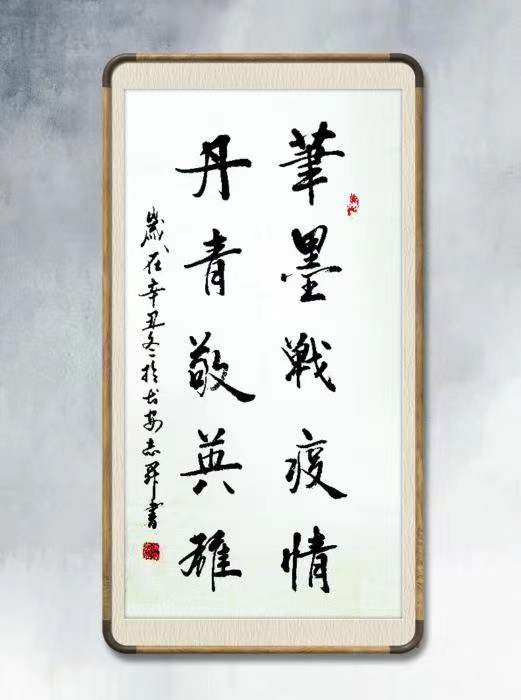 筆墨戰疫情
丹青敬英雄
歲在辛丑冬於長安志昇書